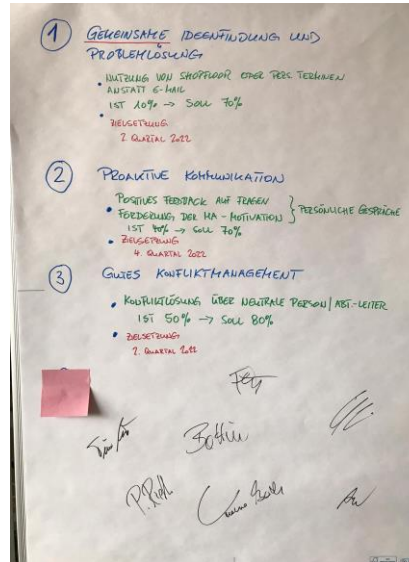 1 GEMEINSAME IDEENFINDUNG UND
PROBLEMLÖSUNG
• NUTZUNG VON SHOPFLOOR ODER PERS. TERMINEN
ANSTATT E-MAIL
IST 10% → SOLL 70%
• ZIELSETZUNG
2. QUARTAL 2022
2 PROAKTIVE KOMMUNIKATION
POSITIVES FEEDBACK AUF FRAGEN
• FÖRDERUNG DER MA-MOTIVATION } PERSÖNLICHE GESPRÄCHE
IST 40% → SOLL 70%
• ZIELSETZUNG
4. QUARTAL 2022
3 GUTES KONFLIKTMANAGEMENT
• KONFLIKTLÖSUNG ÜBER NEUTRALE PERSON/ABT.-LEITER
IST 50% → SOLL 80%
• ZIELSETZUNG
2. QUARTAL 2022